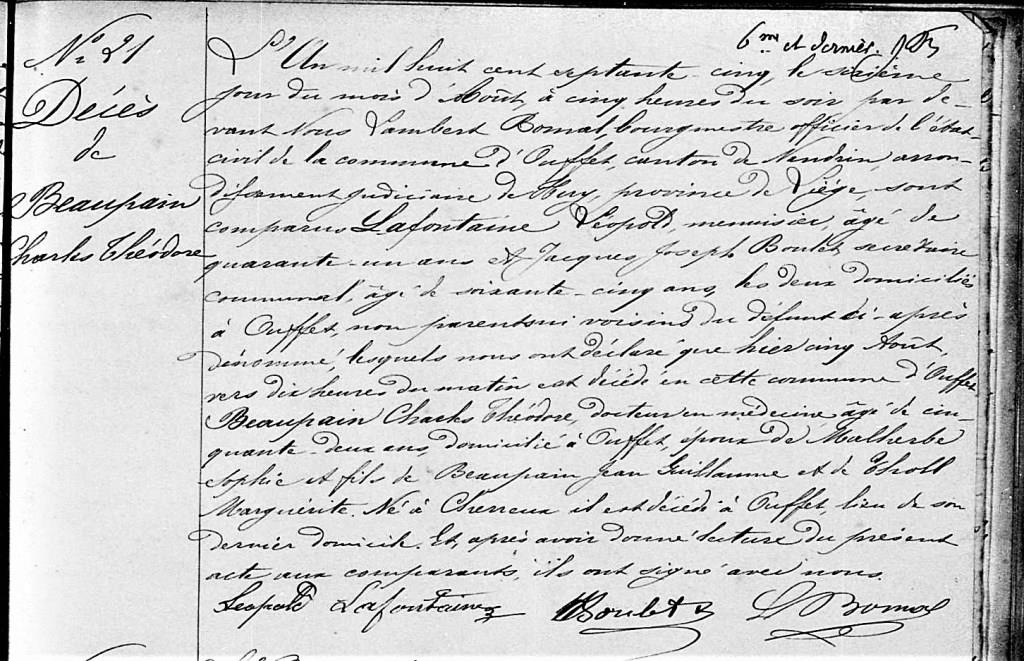 6me et dernier.
N° 21
Décès
de
Beaupain
Charles Théodore
L'An mil huit cent septante-cinq, le sixième
jour du mois d'Août, à cinq heures du soir par de-
vant Nous Lambert Bomal, bourgmestre officier de l'état
civil de la commune d'Ouffet, canton de Nandrin arron-
dissement judiciaire de Huy, province de Liége, sont
comparus Lafontaine Léopold, menuisier, âgé de
quarante-un ans et Jacques Joseph Boulet secrétaire
communal, âgé de soixante-cinq ans, les deux domiciliés
à Ouffet, non parents ni voisins du défunt ci-après
dénommé, lesquels nous ont déclaré que hier cinq Août,
vers dix heures du matin est décédé en cette commune d'Ouffet
Beaupain Charles Théodore, docteur en médecine âgé de cin-
quante-deux ans, domicilié à Ouffet, époux de Malherbe
Sophie et fils de Beaupain Jean Guillaume et de Tholl
Marguérite. Né à Cherreux il est décédé à Ouffet, lieu de son
dernier domicile. Et, après avoir donné lecture du présent
acte aux comparants, ils ont signé avec nous.
Léopold Lafontaine Boulet L Bomal